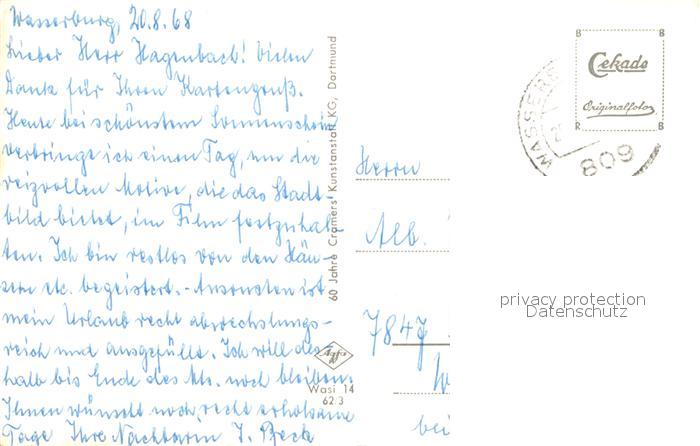 Wasserburg, 20.8.68
Lieber Herr Hagenbach! Vielen
Dank für Ihren Kartengruß.
Heute bei schönstem Sonnenschein
verbringe ich einen Tag, um die
reizvollen Motive, die das Stadt-
bild bietet, im Film festzuhal-
ten. Ich bin restlos von den Häu-
sern etc. begeistert. - Ansonsten ist
mein Urlaub recht abwechslungs-
reich und ausgefüllt. Ich will des-
halb bis Ende des Mts. noch bleiben.
Ihnen wünscht noch recht erholsame
Tage Ihre Nachbarin J. Beck
60 Jahre Cramers' Kunstanstalt KG, Dortmund
Agfa
Wasi 14
62:3
Herrn
Alb.
7847
bei
B B
Cekade
Originalfoto
R B
WASSERB
809
privacy protection
Datenschutz